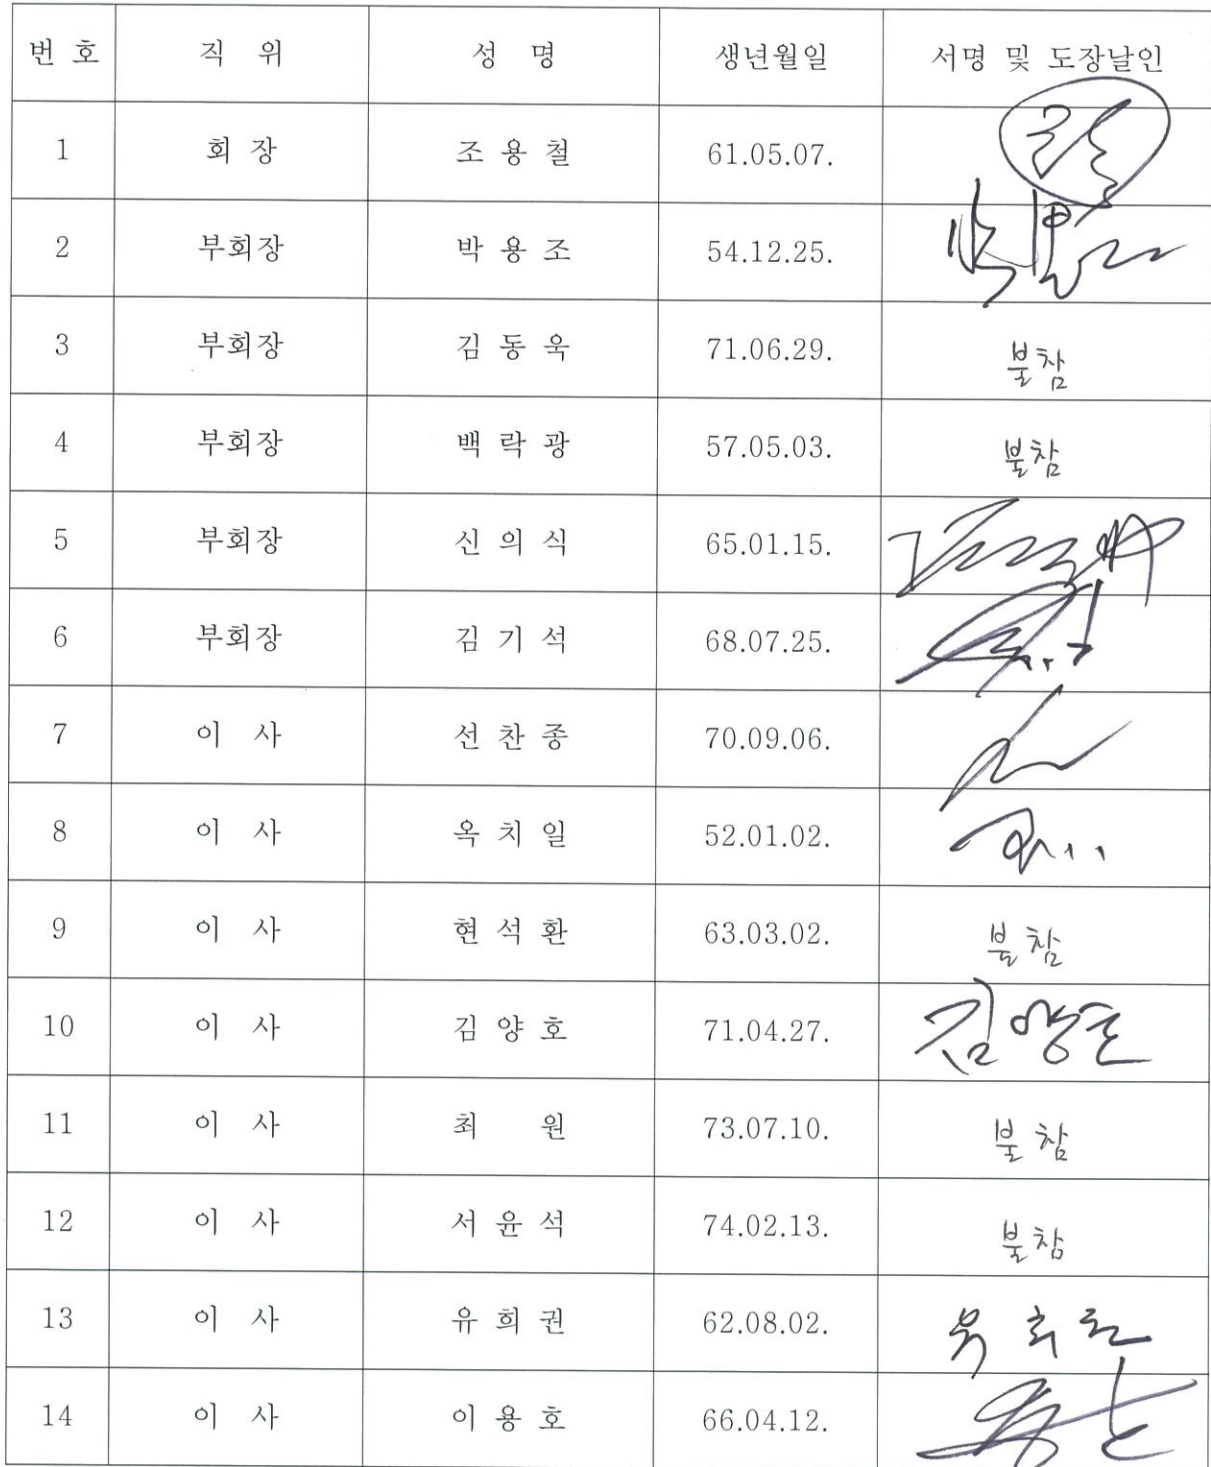 번 호 직 위 성 명 생년월일 서명 및 도장날인
1 회 장 조 용 철 61.05.07.
2 부회장 박 용 조 54.12.25.
3 부회장 김 동 욱 71.06.29. 불참
4 부회장 백 락 광 57.05.03. 불참
5 부회장 신 의 식 65.01.15.
6 부회장 김 기 석 68.07.25.
7 이 사 선 찬 종 70.09.06.
8 이 사 옥 치 일 52.01.02.
9 이 사 현 석 환 63.03.02. 불참
10 이 사 김 양 호 71.04.27. 김양호
11 이 사 최 원 73.07.10. 불참
12 이 사 서 윤 석 74.02.13. 불참
13 이 사 유 희 권 62.08.02. 유 희 권
14 이 사 이 용 호 66.04.12.